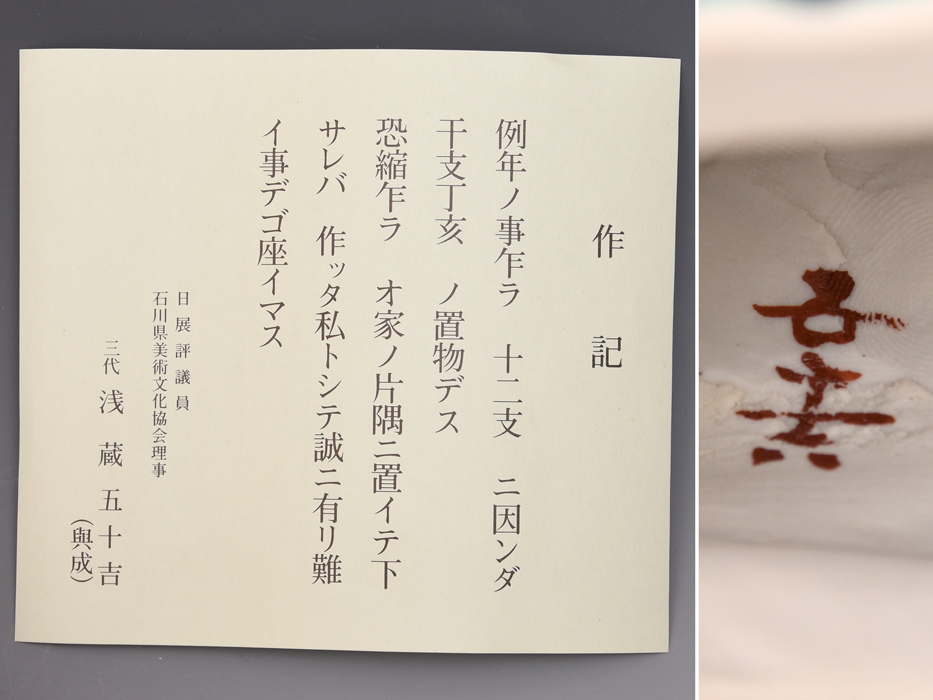 作記
例年ノ事乍ラ 十二支 ニ因ンダ
干支丁亥 ノ置物デス
恐縮乍ラ オ家ノ片隅ニ置イテ下
サレバ 作ッタ私トシテ誠ニ有リ難
イ事デゴ座イマス
日展評議員
石川県美術文化協会理事
三代 浅蔵五十吉
(與成)